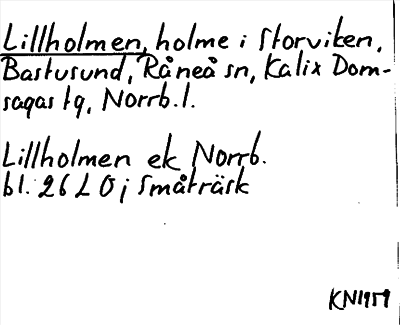 Lillholmen, holme i Storviken,
Bastusund, Råneå sn, Kalix Dom-
sagas tg, Norrb. l.
Lillholmen ek Norrb.
bl. 26 L Ö j Småträsk
KN1959